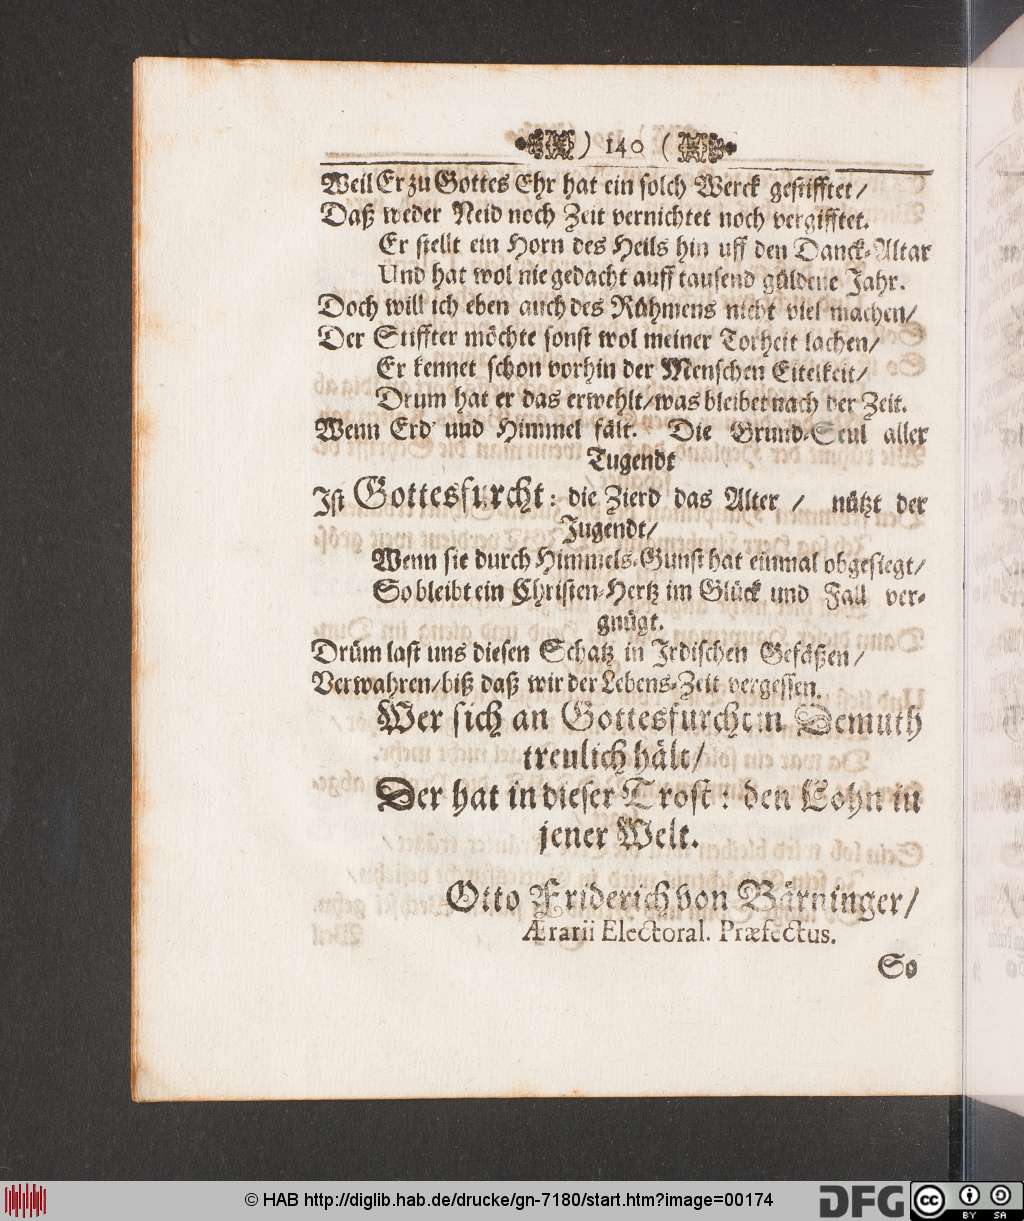 ) 140 (
Weil Er zu Gottes Ehr hat ein solch Werck gestifftet /
Daß weder Neid noch Zeit vernichtet noch vergifftet.
Er stellt ein Horn des Heils hin uff den Danck-Altar
Und hat wol nie gedacht auff tausend güldene Jahr.
Doch will ich eben auch des Rühmens nicht viel machen /
Der Stiffter möchte sonst wol meiner Torheit lachen /
Er kennet schon vorhin der Menschen Eitelkeit /
Drum hat er das erwehlt / was bleibet nach der Zeit.
Wenn Erd' und Himmel fält. Die Grund-Seul aller
Tugendt
Ist Gottesfurcht: die Zierd das Alter / nützt der
Jugendt /
Wenn sie durch Himmels-Gunst hat einmal obgesiegt /
So bleibt ein Christen-Hertz im Glück und Fall ver-
gnügt.
Drüm last uns diesen Schatz in Irdischen Gefäßen /
Verwahren / biß daß wir der Lebens-Zeit vergessen.
Wer sich an Gottesfurcht in Demuth
treulich hält /
Der hat in dieser Trost: den Lohn in
jener Welt.
Otto Friderich von Bärninger /
Ærarii Electoral. Præfectus.
So
© HAB http://diglib.hab.de/drucke/gn-7180/start.htm?image=00174
DFG
cc BY SA